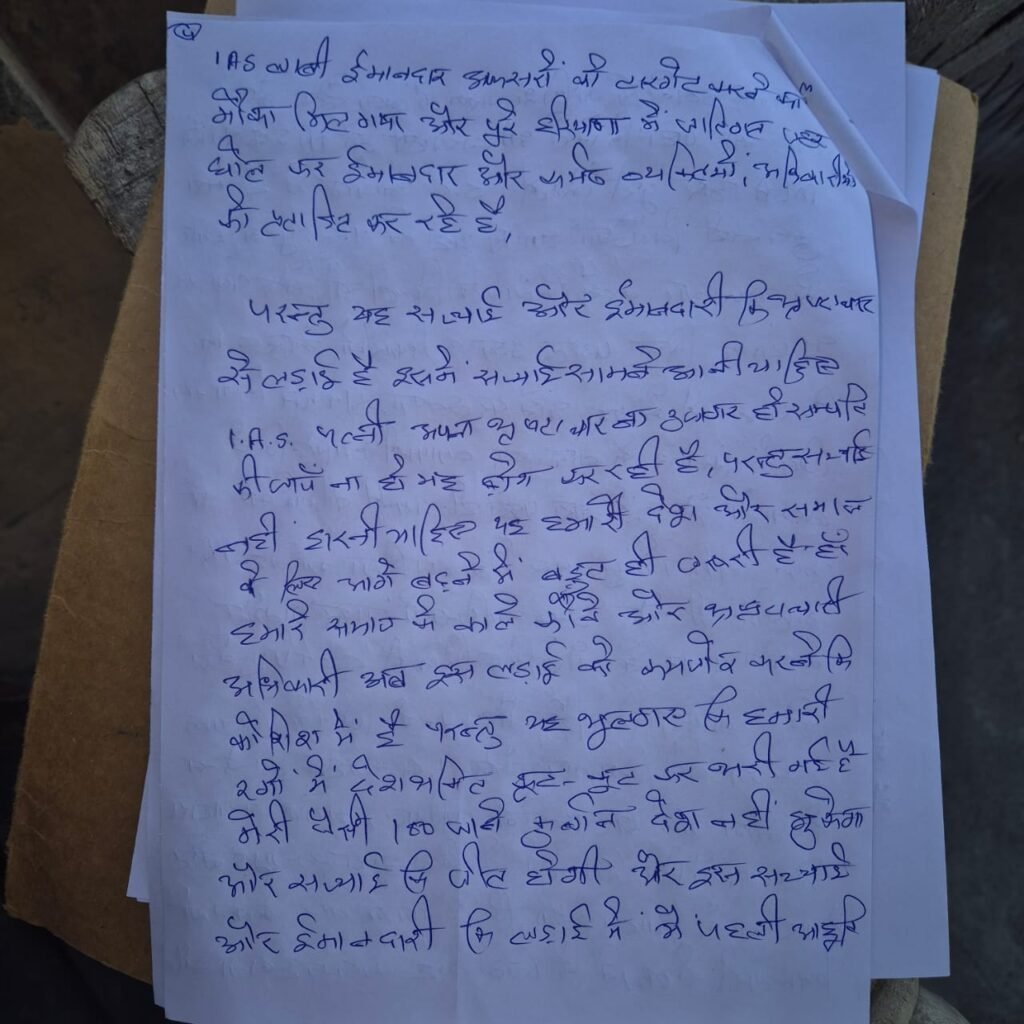 4
IAS लाबी ईमानदार अफसरों को टारगेट करने का
मौका मिल गया और पुरे हरियाणा में जातिगत जहर
घोल कर ईमानदार और कर्मठ व्यक्तियों, अधिकारीयो
को प्रताडित कर रहे है,
परन्तु यह सच्चाई और ईमानदारी कि भ्रष्टाचार
से लड़ाई है इसमें सच्चाई सामने आनी चाहिए
I.A.S. पत्नी अपना भ्रष्टाचार का उजागर हो सम्पति
की जाँच ना हो यह ढोंग कर रही है, परन्तु सच्चाई
नही हारनी चाहिए यह हमारे देश और समाज
के लिए आगे बढ़ने में बहुत ही जरूरी है
हमारे समाज में काले कौवे और
अधिकारी अब इस लड़ाई को कमजोर करने कि
कोशिश में है परन्तु यह भुलगए कि हमारी
रगों में देशभक्ति कूट-कूट कर भरी गई है
मेरी जैसी 100 जाने कुर्बान देश नहीं झुकेगा
और सच्चाई कि जीत होगी और इस सच्चाई
और ईमानदारी कि लड़ाई में मै पहली आहुति